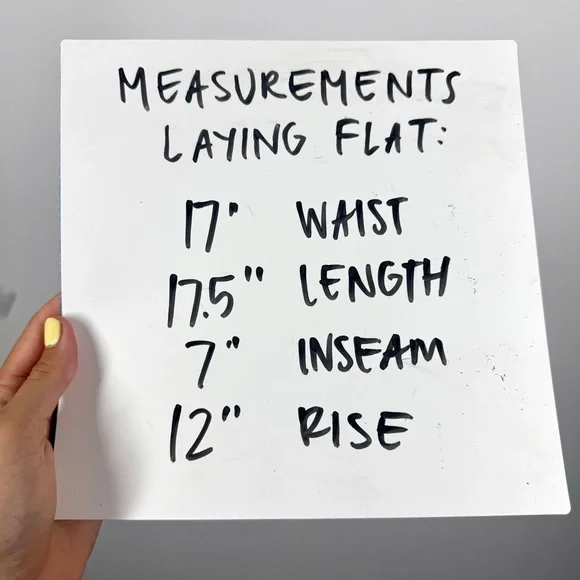 MEASUREMENTS
LAYING FLAT:
17" WAIST
17.5" LENGTH
7" INSEAM
12" RISE